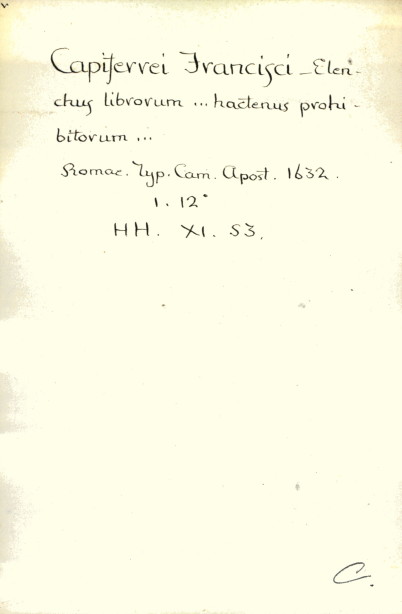 Capiferrei Francisci - Elen-
chus librorum ... hactenus prohi-
bitorum ...
Romae. Typ. Cam. Apost. 1632.
1. 12°
HH. XI. 53.
C.